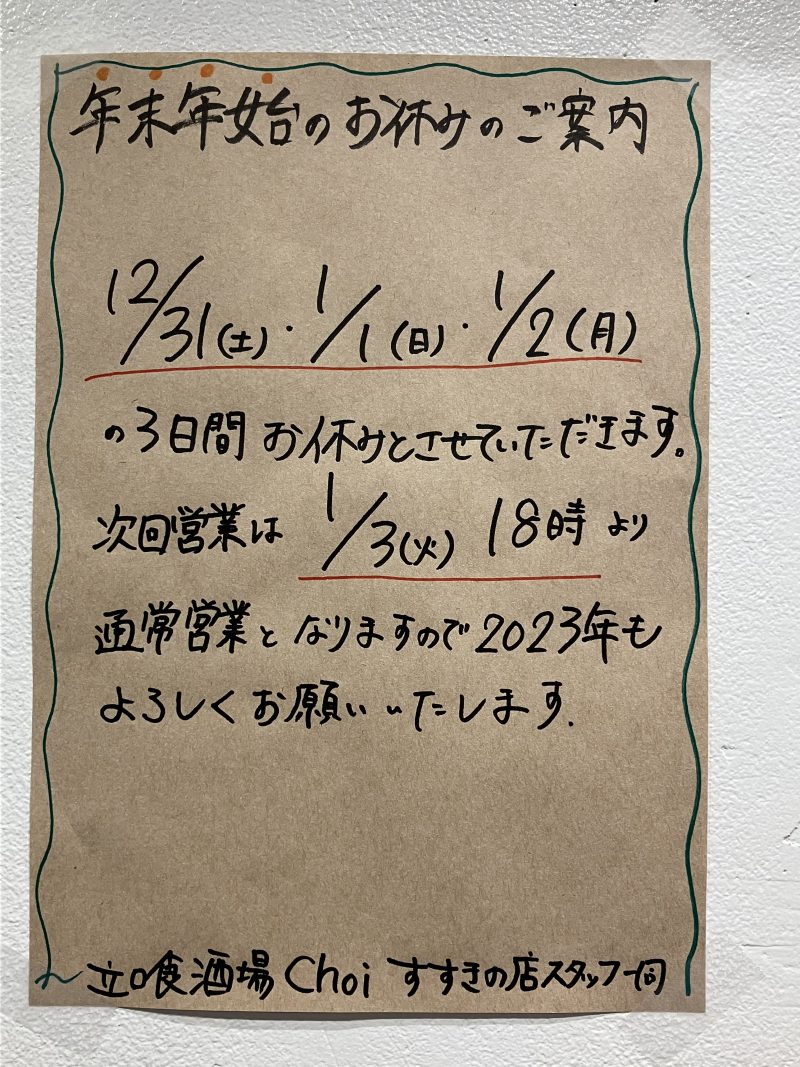 年末年始のお休みのご案内
12/31(土)・1/1(日)・1/2(月)
の3日間 お休みとさせていただきます。
次回営業は 1/3(火) 18時より
通常営業となりますので2023年も
よろしくお願いいたします.
立喰酒場 Choi すすきの店スタッフ一同